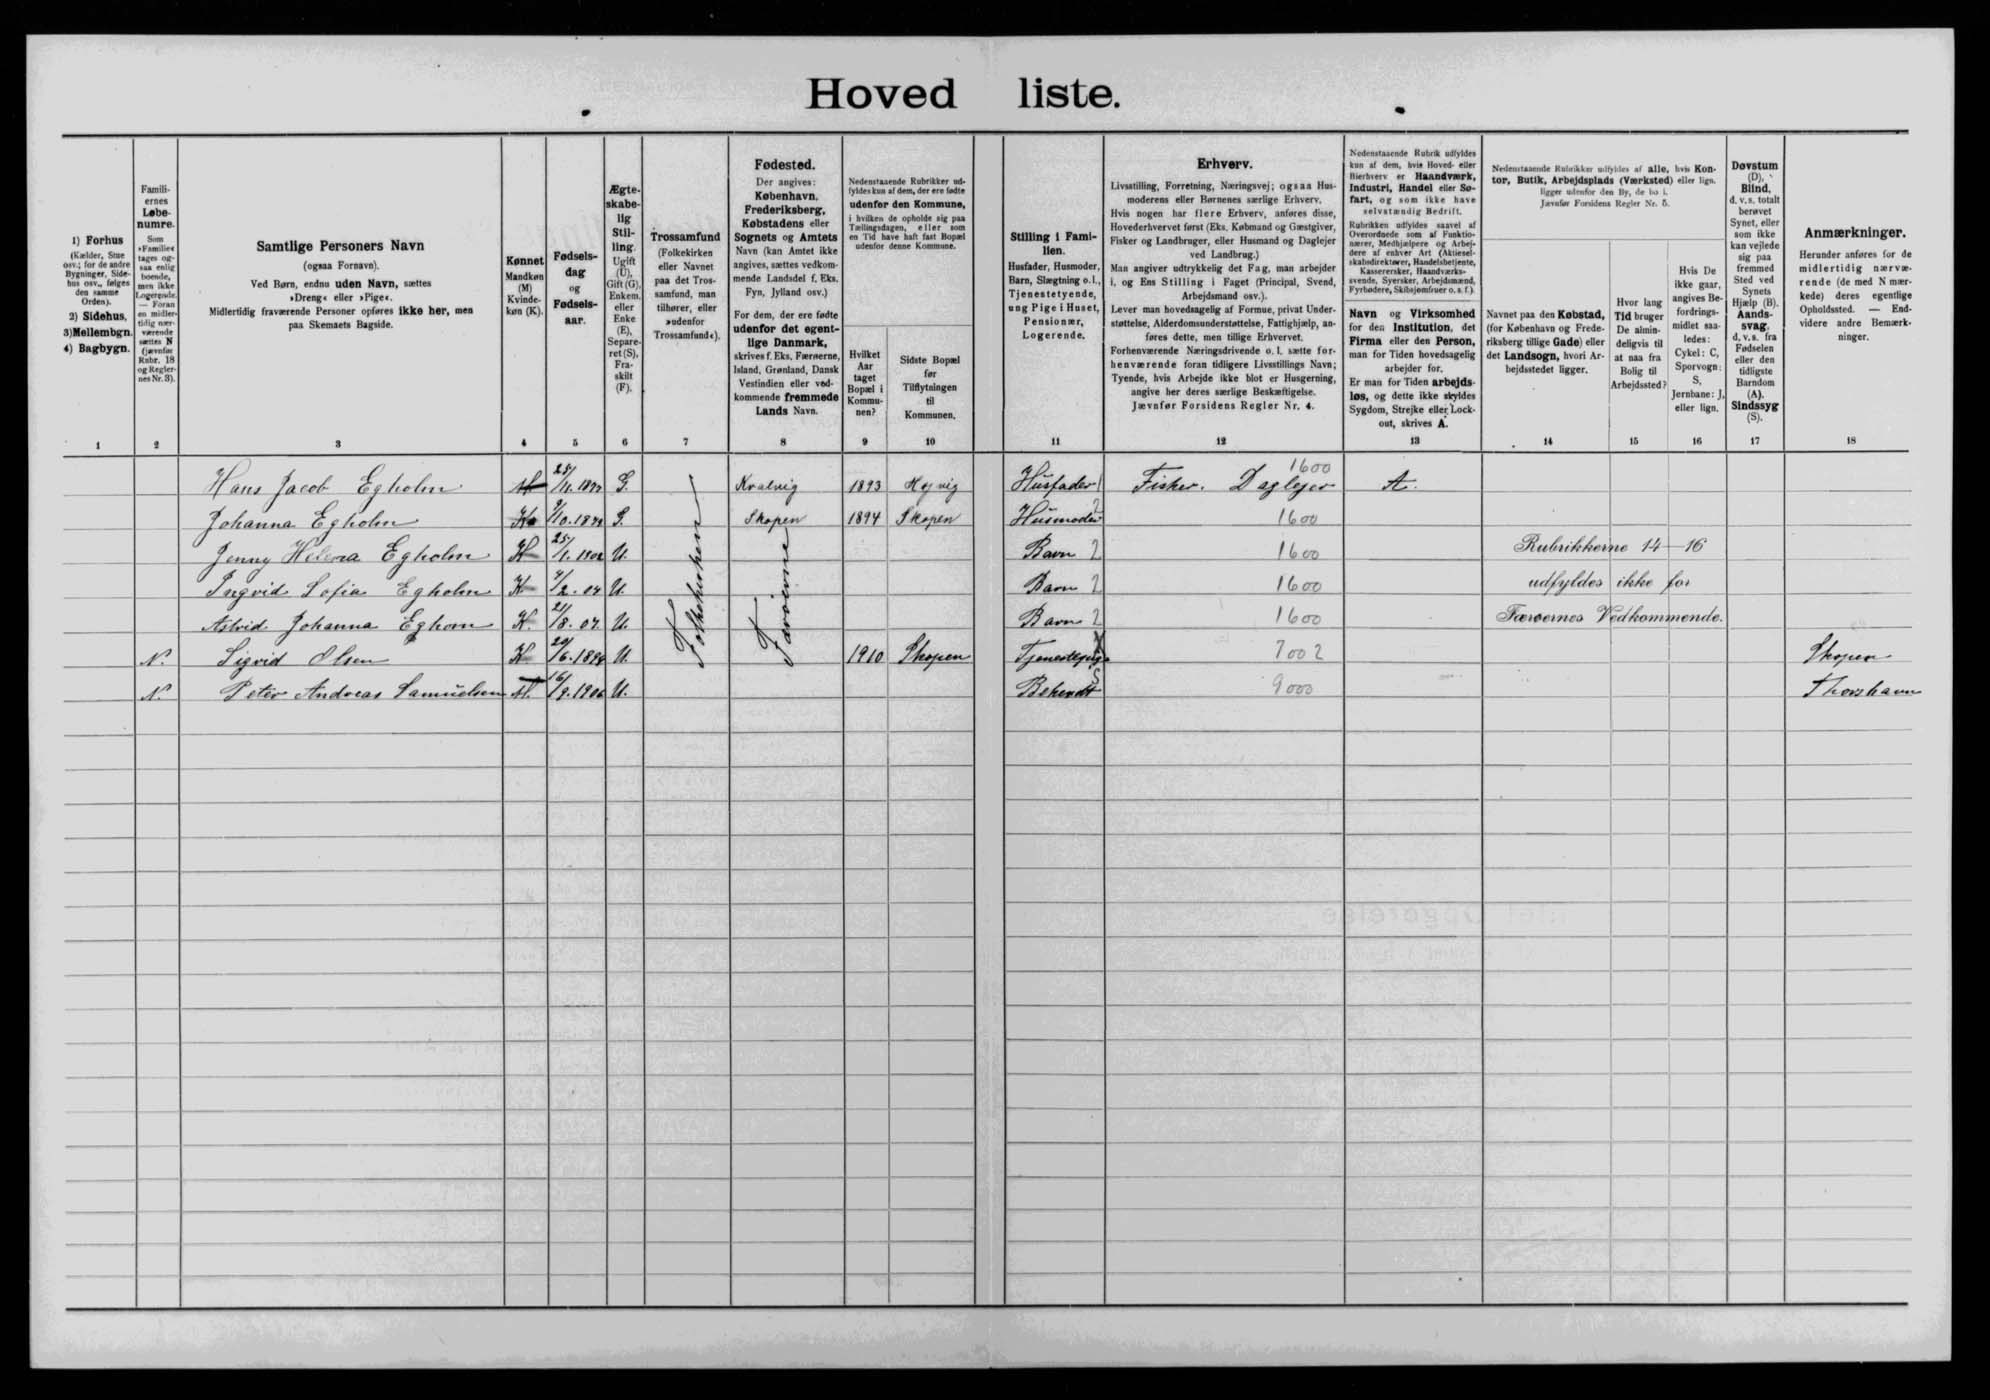 Hoved liste.
1) Forhus
(Kælder, Stue
osv.; for de andre
Bygninger, Side-
hus osv., følges
den samme
Orden).
2) Sidehus,
3) Mellembgn.
4) Bagbygn.
1
Famili-
ernes
Løbe-
numre.
Som
»Familie«
tages og-
saa enlig
boende,
men ikke
Logerende.
— Foran
en midler-
tidig nær-
værende
sættes N
(jævnfør
Rubr. 18
og Regler-
nes Nr. 3).
2
Samtlige Personers Navn
(ogsaa Fornavn).
Ved Børn, endnu uden Navn, sættes
»Dreng« eller »Pige«.
Midlertidig fraværende Personer opføres ikke her, men
paa Skemaets Bagside.
3
Kønnet
Mandkøn
(M)
Kvinde-
køn (K).
4
Fødsels-
dag
og
Fødsels-
aar.
5
Ægte-
skabe-
lig
Stil-
ling.
Ugift
(U),
Gift (G),
Enkem.
eller
Enke
(E),
Separe-
ret (S),
Fra-
skilt
(F).
6
Trossamfund
(Folkekirken
eller Navnet
paa det Tros-
samfund, man
tilhører, eller
»udenfor
Trossamfund«).
7
Fødested.
Der angives:
København,
Frederiksberg,
Købstadens eller
Sognets og Amtets
Navn (kan Amtet ikke
angives, sættes vedkom-
mende Landsdel f. Eks.
Fyn, Jylland osv.)
For dem, der ere fødte
udenfor det egent-
lige Danmark,
skrives f. Eks. Færøerne,
Island, Grønland, Dansk
Vestindien eller ved-
kommende fremmede
Lands Navn.
8
Nedenstaaende Rubrikker ud-
fyldes kun af dem, der ere fødte
udenfor den Kommune,
i hvilken de opholde sig paa
Tællingsdagen, eller som
en Tid have haft fast Bopæl
udenfor denne Kommune.
Hvilket
Aar
taget
Bopæl i
Kommu-
nen?
9
Sidste Bopæl
før
Tilflytningen
til
Kommunen.
10
Stilling i Fami-
lien.
Husfader, Husmoder,
Barn, Slægtning o. l.,
Tjenestetyende,
ung Pige i Huset,
Pensionær,
Logerende.
11
Erhverv.
Livsstilling, Forretning, Næringsvej; ogsaa Hus-
moderens eller Børnenes særlige Erhverv.
Hvis nogen har flere Erhverv, anføres disse,
Hovederhvervet først (Eks. Købmand og Gæstgiver,
Fisker og Landbruger, eller Husmand og Daglejer
ved Landbrug.)
Man angiver udtrykkelig det Fag, man arbejder
i, og Ens Stilling i Faget (Principal, Svend,
Arbejdsmand osv.).
Lever man hovedsagelig af Formue, privat Under-
støttelse, Alderdomsunderstøttelse, Fattighjælp, an-
føres dette, men tillige Erhvervet.
Forhenværende Næringsdrivende o. l. sætte for-
henværende foran tidligere Livsstillings Navn;
Tyende, hvis Arbejde ikke blot er Husgerning,
angive her deres særlige Beskæftigelse.
Jævnfør Forsidens Regler Nr. 4.
12
Nedenstaaende Rubrik udfyldes
kun af dem, hvis Hoved- eller
Bierhverv er Haandværk,
Industri, Handel eller Sø-
fart, og som ikke have
selvstændig Bedrift.
Rubrikken udfyldes saavel af
Overordnede som af Funktio-
nærer, Medhjælpere og Arbej-
dere af enhver Art (Aktiesel-
skabsdirektører, Handelsbetjente,
Kasserersker, Haandværks-
svende, Syersker, Arbejdsmænd,
Fyrbødere, Skibsjomfruer o. s. f.).
Navn og Virksomhed
for den Institution, det
Firma eller den Person,
man for Tiden hovedsagelig
arbejder for.
Er man for Tiden arbejds-
løs, og dette ikke skyldes
Sygdom, Strejke eller Lock-
out, skrives A.
13
Nedenstaaende Rubrikker udfyldes af alle, hvis Kon-
tor, Butik, Arbejdsplads (Værksted) eller lign.
ligger udenfor den By, de bo i.
Jævnfør Forsidens Regler Nr. 5.
Navnet paa den Købstad,
(for København og Frede-
riksberg tillige Gade) eller
det Landsogn, hvori Ar-
bejdsstedet ligger.
14
Hvor lang
Tid bruger
De almin-
deligvis til
at naa fra
Bolig til
Arbejdssted?
15
Hvis De
ikke gaar,
angives Be-
fordrings-
midlet saa-
ledes:
Cykel: C,
Sporvogn:
S,
Jernbane: J,
eller lign.
16
Døvstum
(D),
Blind,
d. v. s. totalt
berøvet
Synet, eller
som ikke
kan vejlede
sig paa
fremmed
Sted ved
Synets
Hjælp (B).
Aands-
svag,
d. v. s. fra
Fødselen
eller den
tidligste
Barndom
(A).
Sindssyg
(S).
17
Anmærkninger.
Herunder anføres for de
midlertidig nærvæ-
rende (de med N mær-
kede) deres egentlige
Opholdssted. — End-
videre andre Bemærk-
ninger.
18
Hans Jacob Egholm M G. Kvalvig 1893 Hojvig Husfader 1 Fisker. Daglejer 1600 A.
Johanna Egholm K G. Skopen 1894 Skopen Husmoder 2 1600
Jenny Helena Egholm K U. Barn 2 1600 Rubrikkerne 14—16
Ingvid Sofia Egholm K 2. 04 U. Barn 2 1600 udfyldes ikke for
Astrid Johanna Eghom K. 21/8. 07. U. Barn 2 1600 Færøernes Vedkommende.
N. Sigrid Olsen K U. 1910 Skopen 7002 Skopen
N. Peter Andreas Samuelsen M. U. 9000 Thorshavn
Folkekirken
Færøerne